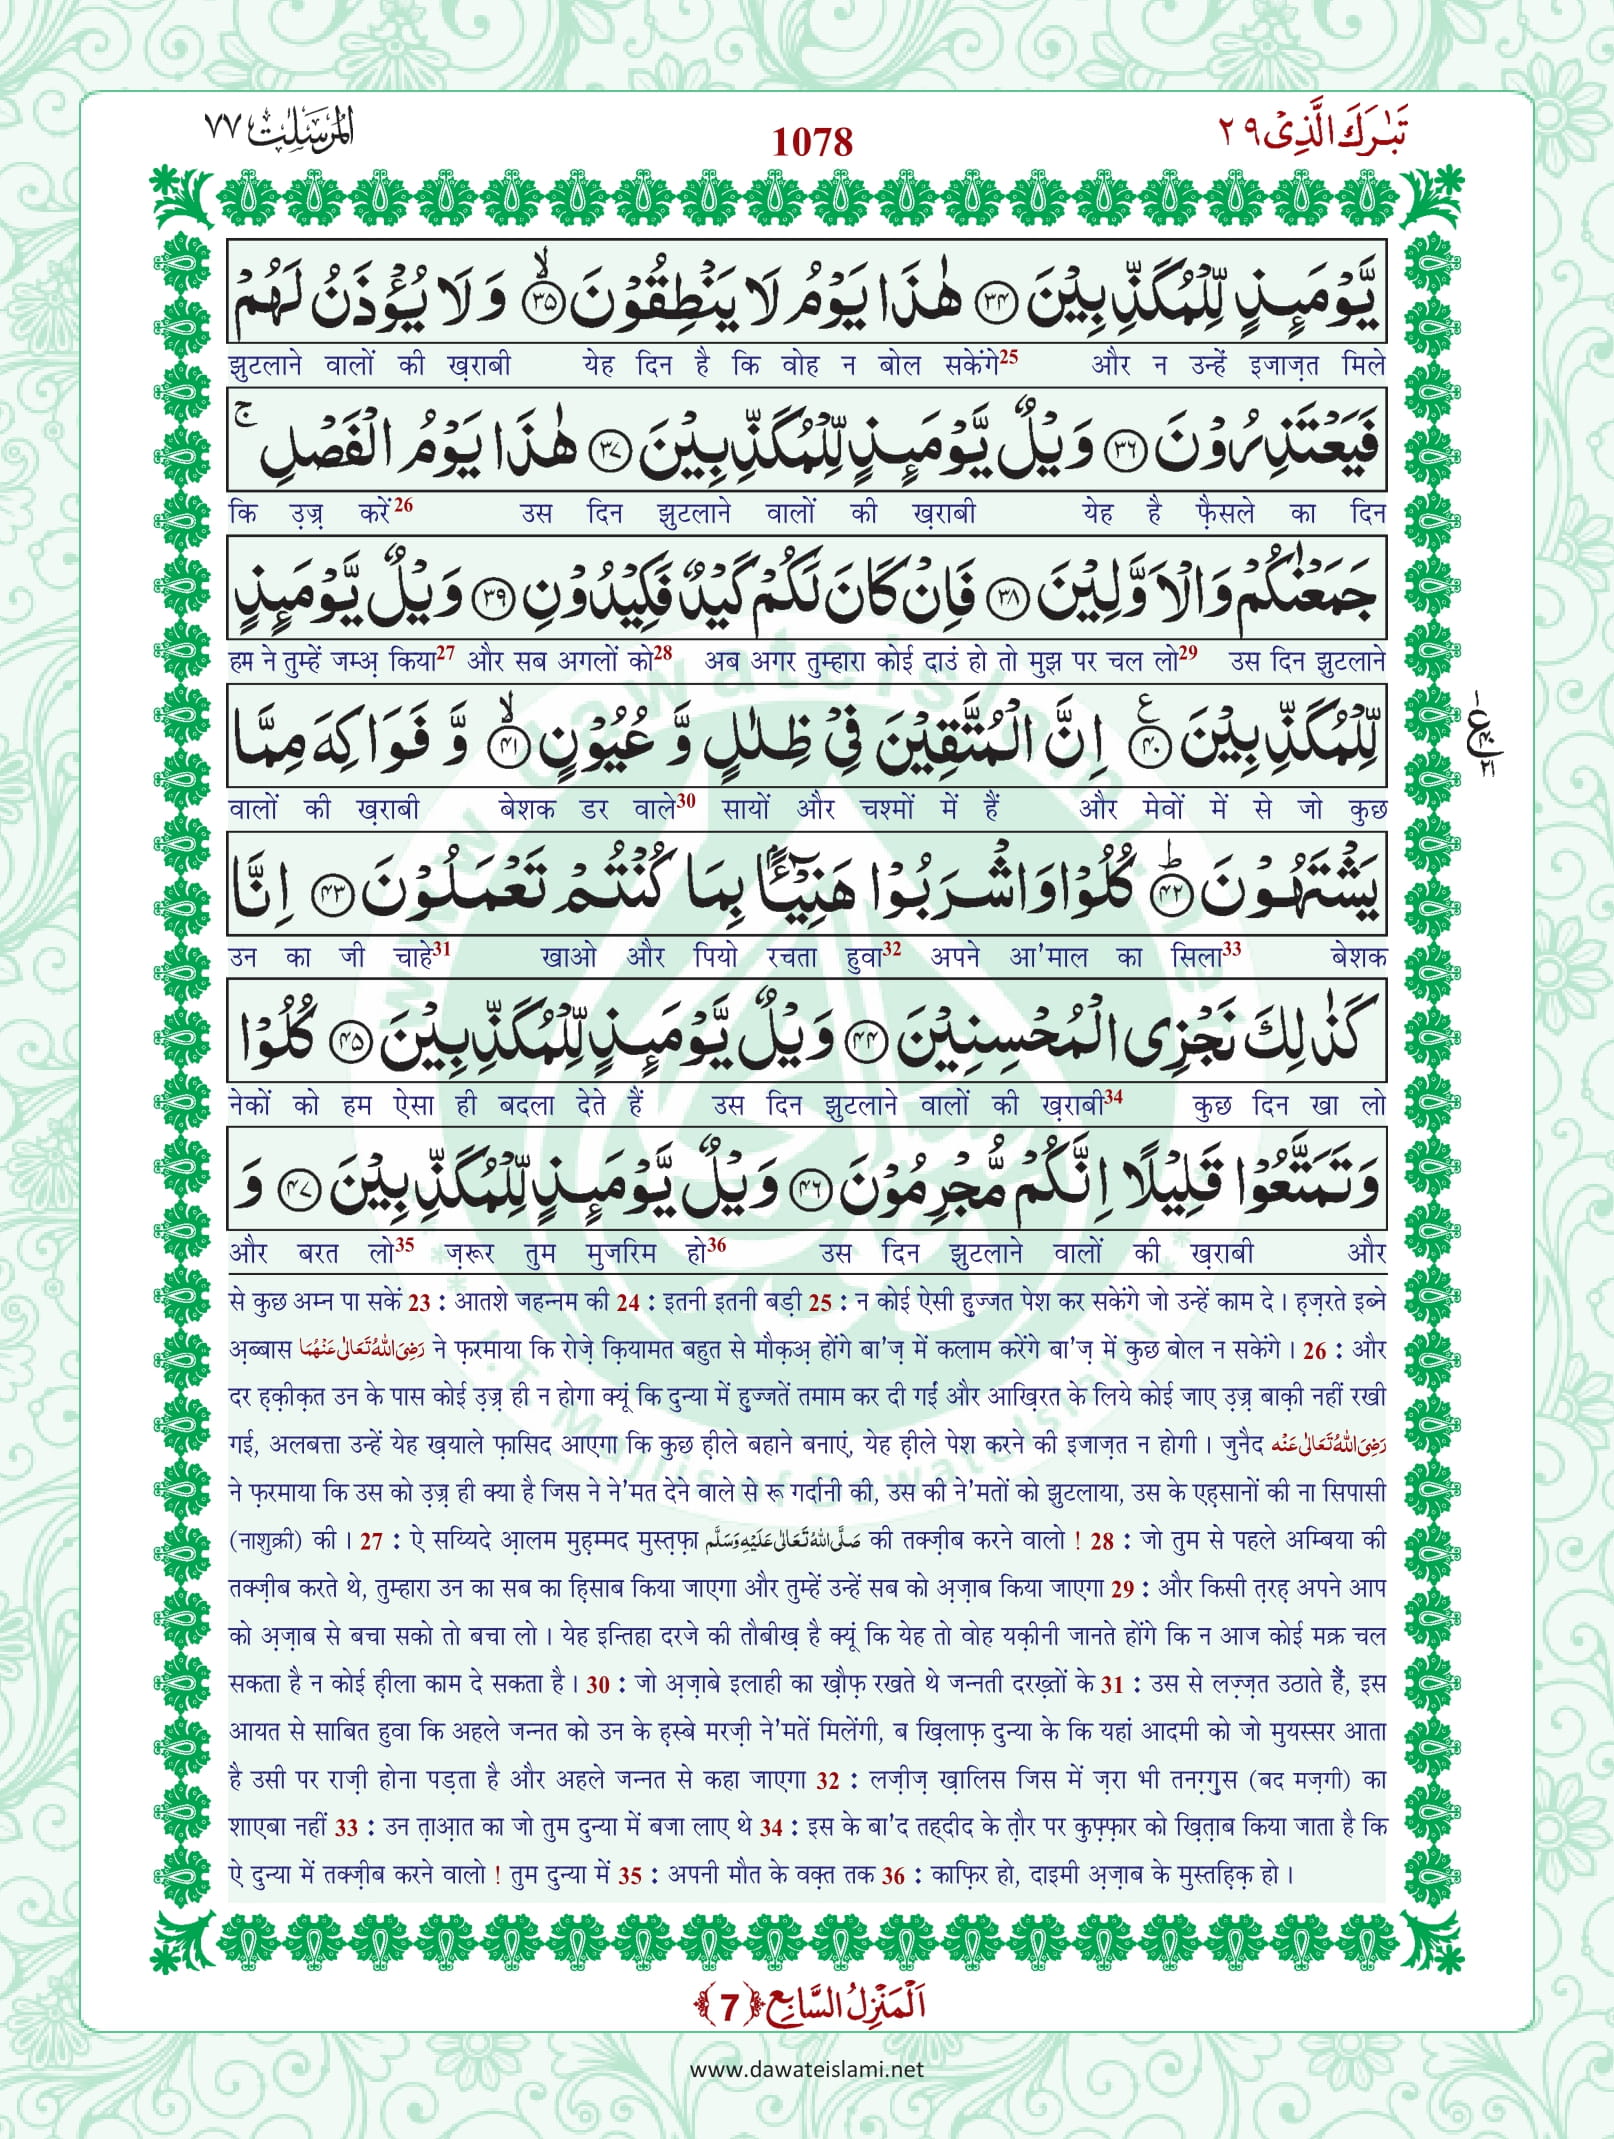 المرسلٰت ٧٧
1078
تَبٰرَكَ الَّذِیْ ٢٩
یَّوْمَىٕذٍ لِّلْمُكَذِّبِیْنَ ﴿۳۴﴾ هٰذَا یَوْمُ لَا یَنْطِقُوْنَۙ ﴿۳۵﴾ وَ لَا یُؤْذَنُ لَهُمْ
झुटलाने वालों की ख़राबी येह दिन है कि वोह न बोल सकेंगे25 और न उन्हें इजाज़त मिले
فَیَعْتَذِرُوْنَ ﴿۳۶﴾ وَیْلٌ یَّوْمَىٕذٍ لِّلْمُكَذِّبِیْنَ ﴿۳۷﴾ هٰذَا یَوْمُ الْفَصْلِۚ
कि उ़ज़्र करें26 उस दिन झुटलाने वालों की ख़राबी येह है फ़ैसले का दिन
جَمَعْنٰكُمْ وَ الْاَوَّلِیْنَ ﴿۳۸﴾ فَاِنْ كَانَ لَكُمْ كَیْدٌ فَكِیْدُوْنِ ﴿۳۹﴾ وَیْلٌ یَّوْمَىٕذٍ
हम ने तुम्हें जम्अ़ किया27 और सब अगलों को28 अब अगर तुम्हारा कोई दाउं हो तो मुझ पर चल लो29 उस दिन झुटलाने
لِّلْمُكَذِّبِیْنَ ﴿۴۰﴾ع اِنَّ الْمُتَّقِیْنَ فِیْ ظِلٰلٍ وَّ عُیُوْنٍۙ ﴿۴۱﴾ وَّ فَوَاكِهَ مِمَّا
वालों की ख़राबी बेशक डर वाले30 सायों और चश्मों में हैं और मेवों में से जो कुछ
یَشْتَهُوْنَؕ ﴿۴۲﴾ كُلُوْا وَ اشْرَبُوْا هَنِیْٓــٴًۢا بِمَا كُنْتُمْ تَعْمَلُوْنَ ﴿۴۳﴾ اِنَّا
उन का जी चाहे31 खाओ और पियो रचता हुवा32 अपने आ'माल का सिला33 बेशक
كَذٰلِكَ نَجْزِی الْمُحْسِنِیْنَ ﴿۴۴﴾ وَیْلٌ یَّوْمَىٕذٍ لِّلْمُكَذِّبِیْنَ ﴿۴۵﴾ كُلُوْا
नेकों को हम ऐसा ही बदला देते हैं उस दिन झुटलाने वालों की ख़राबी34 कुछ दिन खा लो
وَ تَمَتَّعُوْا قَلِیْلًا اِنَّكُمْ مُّجْرِمُوْنَ ﴿۴۶﴾ وَیْلٌ یَّوْمَىٕذٍ لِّلْمُكَذِّبِیْنَ ﴿۴۷﴾ وَ
और बरत लो35 ज़रूर तुम मुजरिम हो36 उस दिन झुटलाने वालों की ख़राबी और
से कुछ अम्न पा सकें 23 : आतशे जहन्नम की 24 : इतनी इतनी बड़ी 25 : न कोई ऐसी हुज्जत पेश कर सकेंगे जो उन्हें काम दे। ह़ज़रते इब्ने
अ़ब्बास رَضِیَ اللّٰهُ تَعَالٰی عَنْهُمَا ने फ़रमाया कि रोज़े क़ियामत बहुत से मौक़अ़ होंगे बा'ज़ में कलाम करेंगे बा'ज़ में कुछ बोल न सकेंगे। 26 : और
दर ह़क़ीक़त उन के पास कोई उ़ज़्र ही न होगा क्यूं कि दुन्या में हुज्जतें तमाम कर दी गईं और आख़िरत के लिये कोई जाए उ़ज़्र बाक़ी नहीं रखी
गई, अलबत्ता उन्हें येह ख़याले फ़ासिद आएगा कि कुछ ह़ीले बहाने बनाएं, येह ह़ीले पेश करने की इजाज़त न होगी। जुनैद رَضِیَ اللّٰهُ تَعَالٰی عَنْه
ने फ़रमाया कि उस को उ़ज़्र ही क्या है जिस ने ने'मत देने वाले से रू गर्दानी की, उस की ने'मतों को झुटलाया, उस के एह़सानों की ना सिपासी
(नाशुक्री) की। 27 : ऐ सय्यिदे आ़लम मुह़म्मद मुस्त़फ़ा صَلَّی اللّٰهُ تَعَالٰی عَلَیْهِ وَسَلَّم की तक्ज़ीब करने वालो ! 28 : जो तुम से पहले अम्बिया की
तक्ज़ीब करते थे, तुम्हारा उन का सब का ह़िसाब किया जाएगा और तुम्हें उन्हें सब को अ़ज़ाब किया जाएगा 29 : और किसी त़रह़ अपने आप
को अ़ज़ाब से बचा सको तो बचा लो। येह इन्तिहा दरजे की तौबीख़ है क्यूं कि येह तो वोह यक़ीनी जानते होंगे कि न आज कोई मक्र चल
सकता है न कोई ह़ीला काम दे सकता है। 30 : जो अ़ज़ाबे इलाही का ख़ौफ़ रखते थे जन्नती दरख़्तों के 31 : उस से लज़्ज़त उठाते हैं, इस
आयत से साबित हुवा कि अहले जन्नत को उन के ह़स्बे मरज़ी ने'मतें मिलेंगी, ब ख़िलाफ़ दुन्या के कि यहां आदमी को जो मुयस्सर आता
है उसी पर राज़ी होना पड़ता है और अहले जन्नत से कहा जाएगा 32 : लज़ीज़ ख़ालिस जिस में ज़रा भी तनग़्ग़ुस (बद मज़गी) का
शाएबा नहीं 33 : उन त़ाआ़त का जो तुम दुन्या में बजा लाए थे 34 : इस के बा'द तह्दीद के त़ौर पर कुफ़्फ़ार को ख़ित़ाब किया जाता है कि
ऐ दुन्या में तक्ज़ीब करने वालो ! तुम दुन्या में 35 : अपनी मौत के वक़्त तक 36 : काफ़िर हो, दाइमी अ़ज़ाब के मुस्तह़िक़ हो।
اَلْمَنْزِلُ السَّابِع ﴿7﴾
www.dawateislami.net